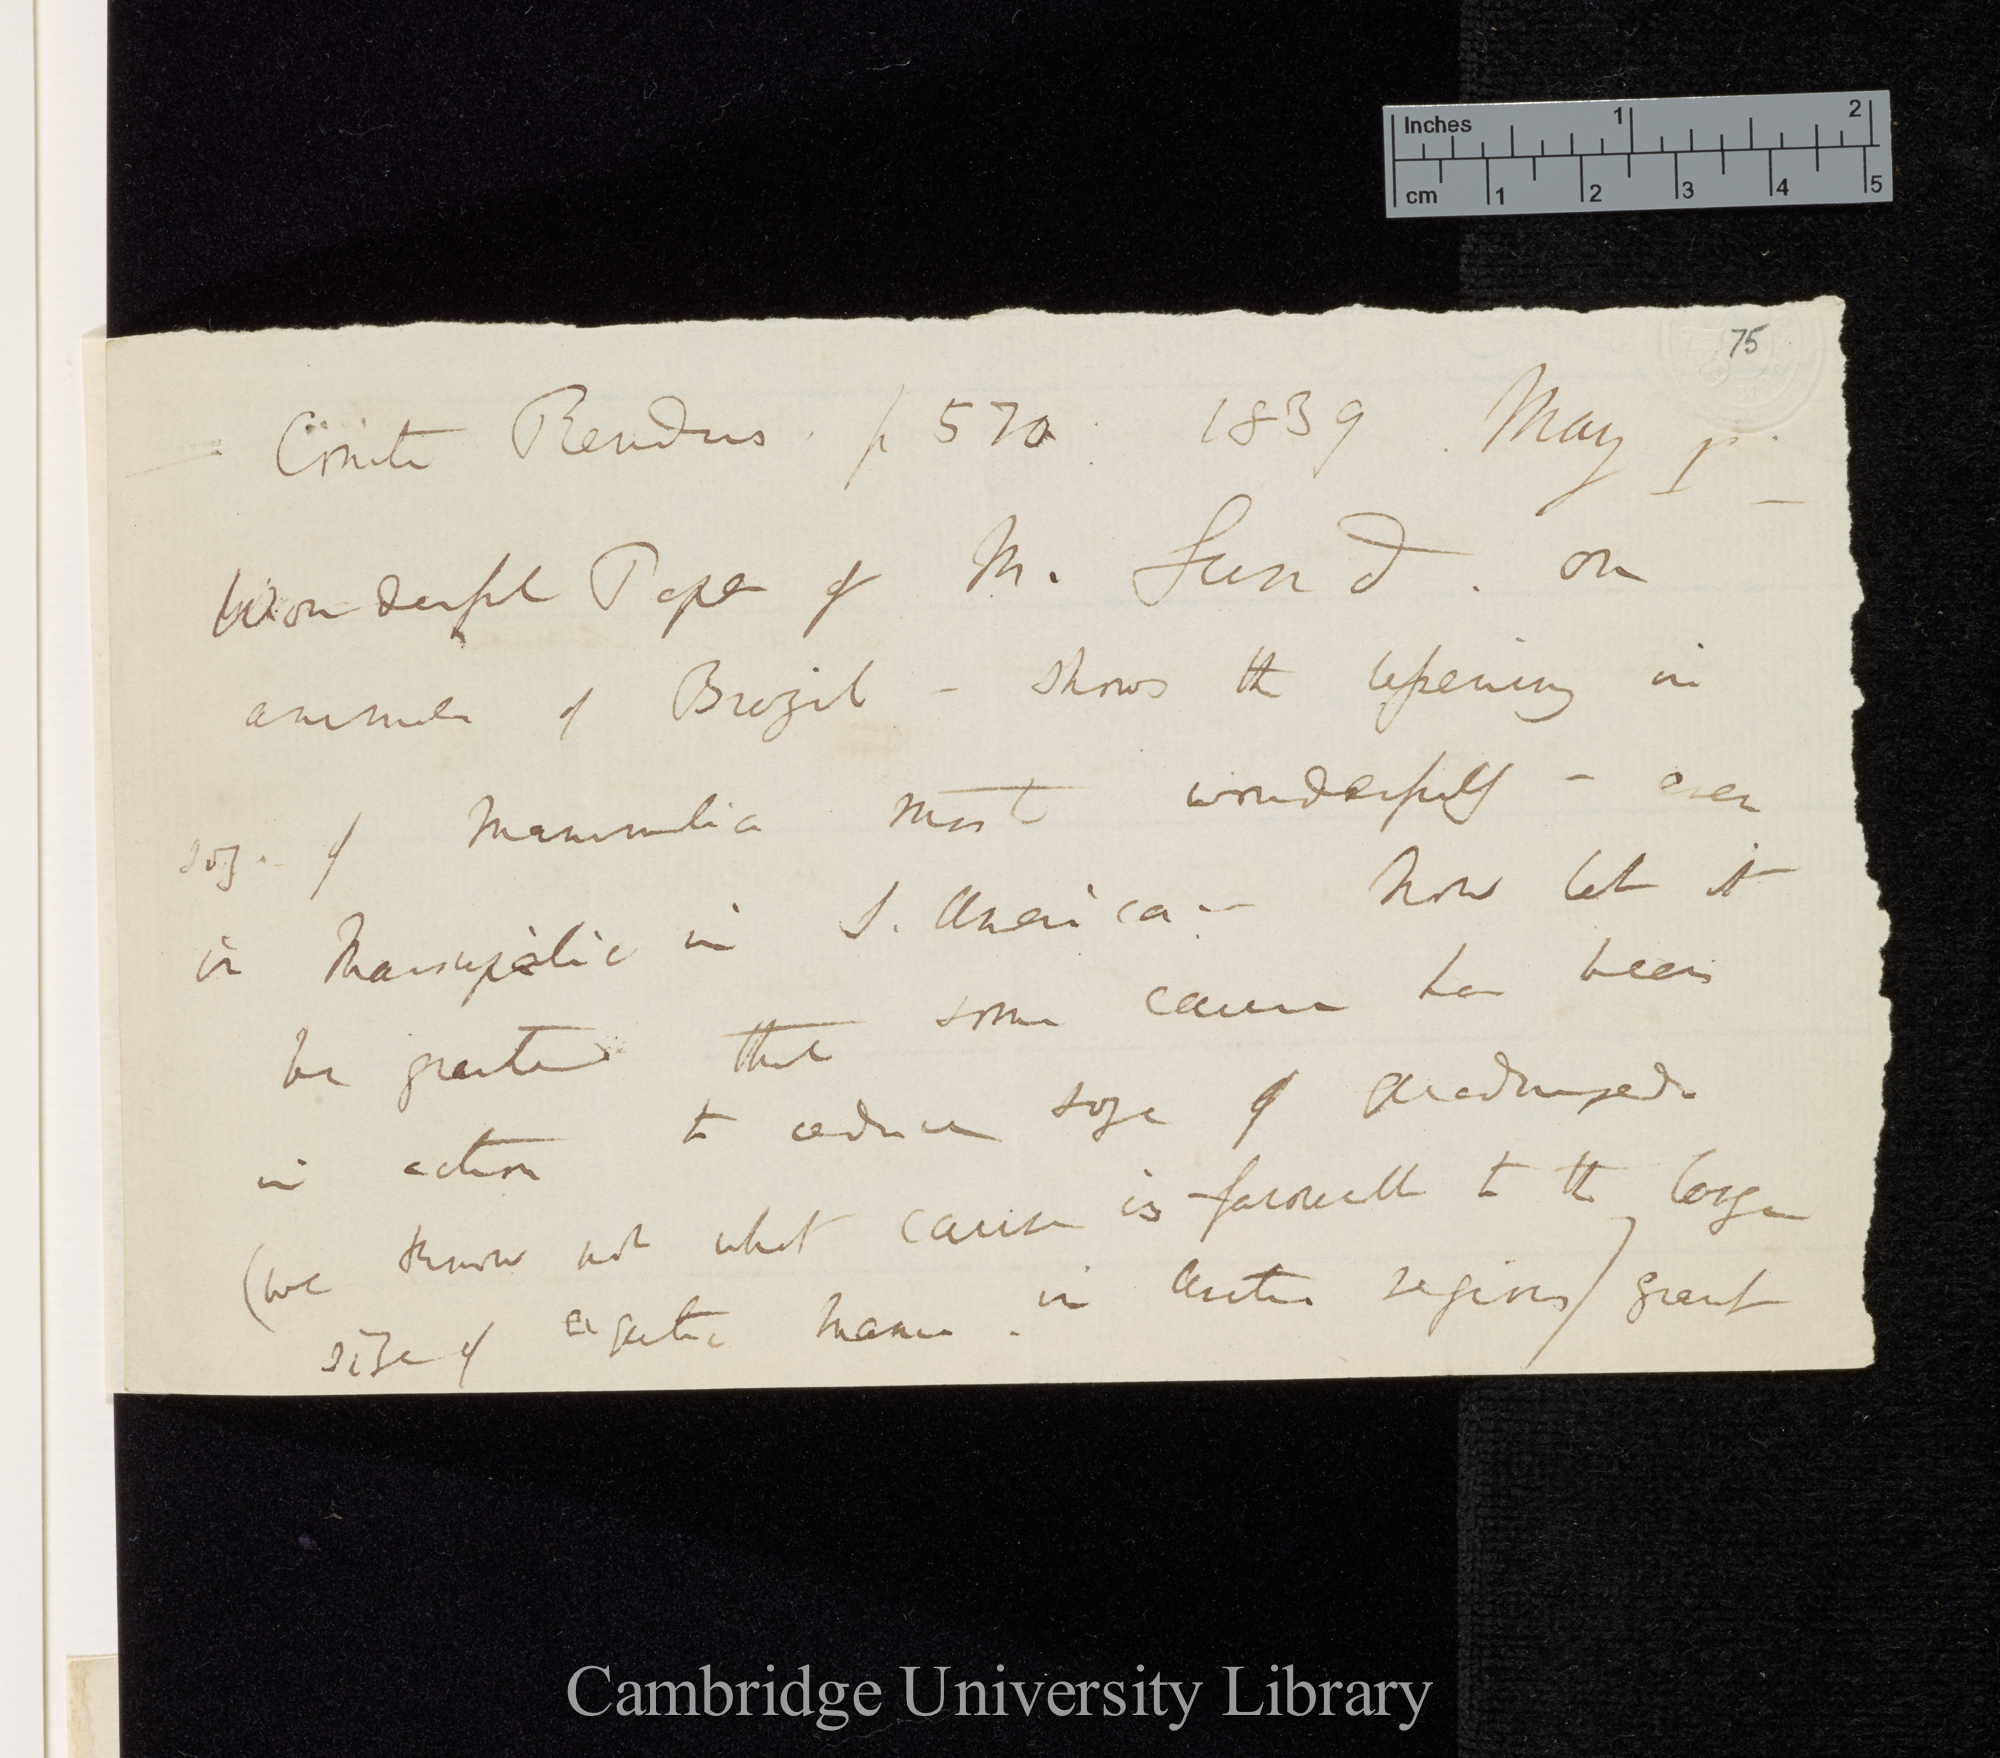 Inches 1 2
cm 1 2 3 4 5
75
Comte Rendus. p 570. 1839. May 1st. —
Wonderful Paper of M. Lund. on
animals of Brazil — shows the lessening in
size of Mammalia most wonderfully — even
in Marsupialia in S. America — Now let it
be granted that some cause has been
in action to reduce size of quadrupeds
(we know not what cause is favourable to the large
size of aquatic Mamm. in Arctic regions) grant
Cambridge University Library